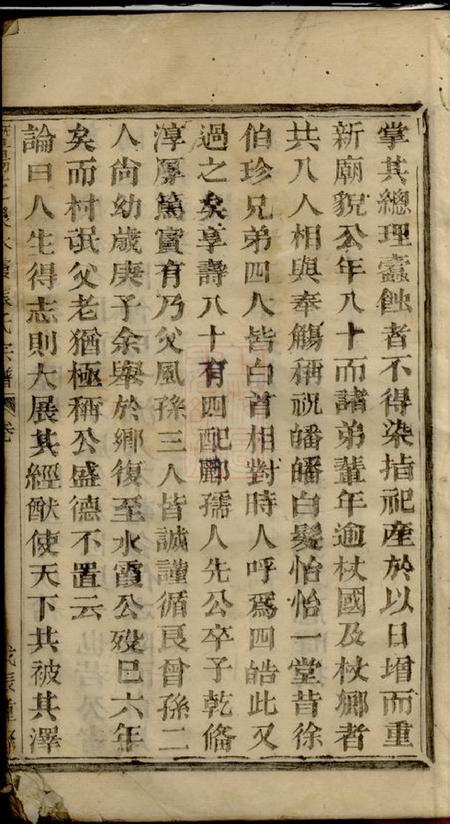 掌其總理蠹蝕者不得染指祀產於以日增而重
新廟貌公年八十而諸弟輩年逾杖國及杖鄉者
共八人相與奉觴稱祝皤皤白髮怡怡一堂昔徐
伯珍兄弟四人皆白首相對時人呼爲四皓此又
過之矣享壽八十有四配酈孺人先公卒子乾脩
淳厚篤實有乃父風孫三人皆誠謹循良曾孫二
人尙幼歲庚子余舉於鄉復至水霞公歿已六年
矣而村氓父老猶極稱公盛德不置云
論曰人生得志則大展其經猷使天下共被其澤